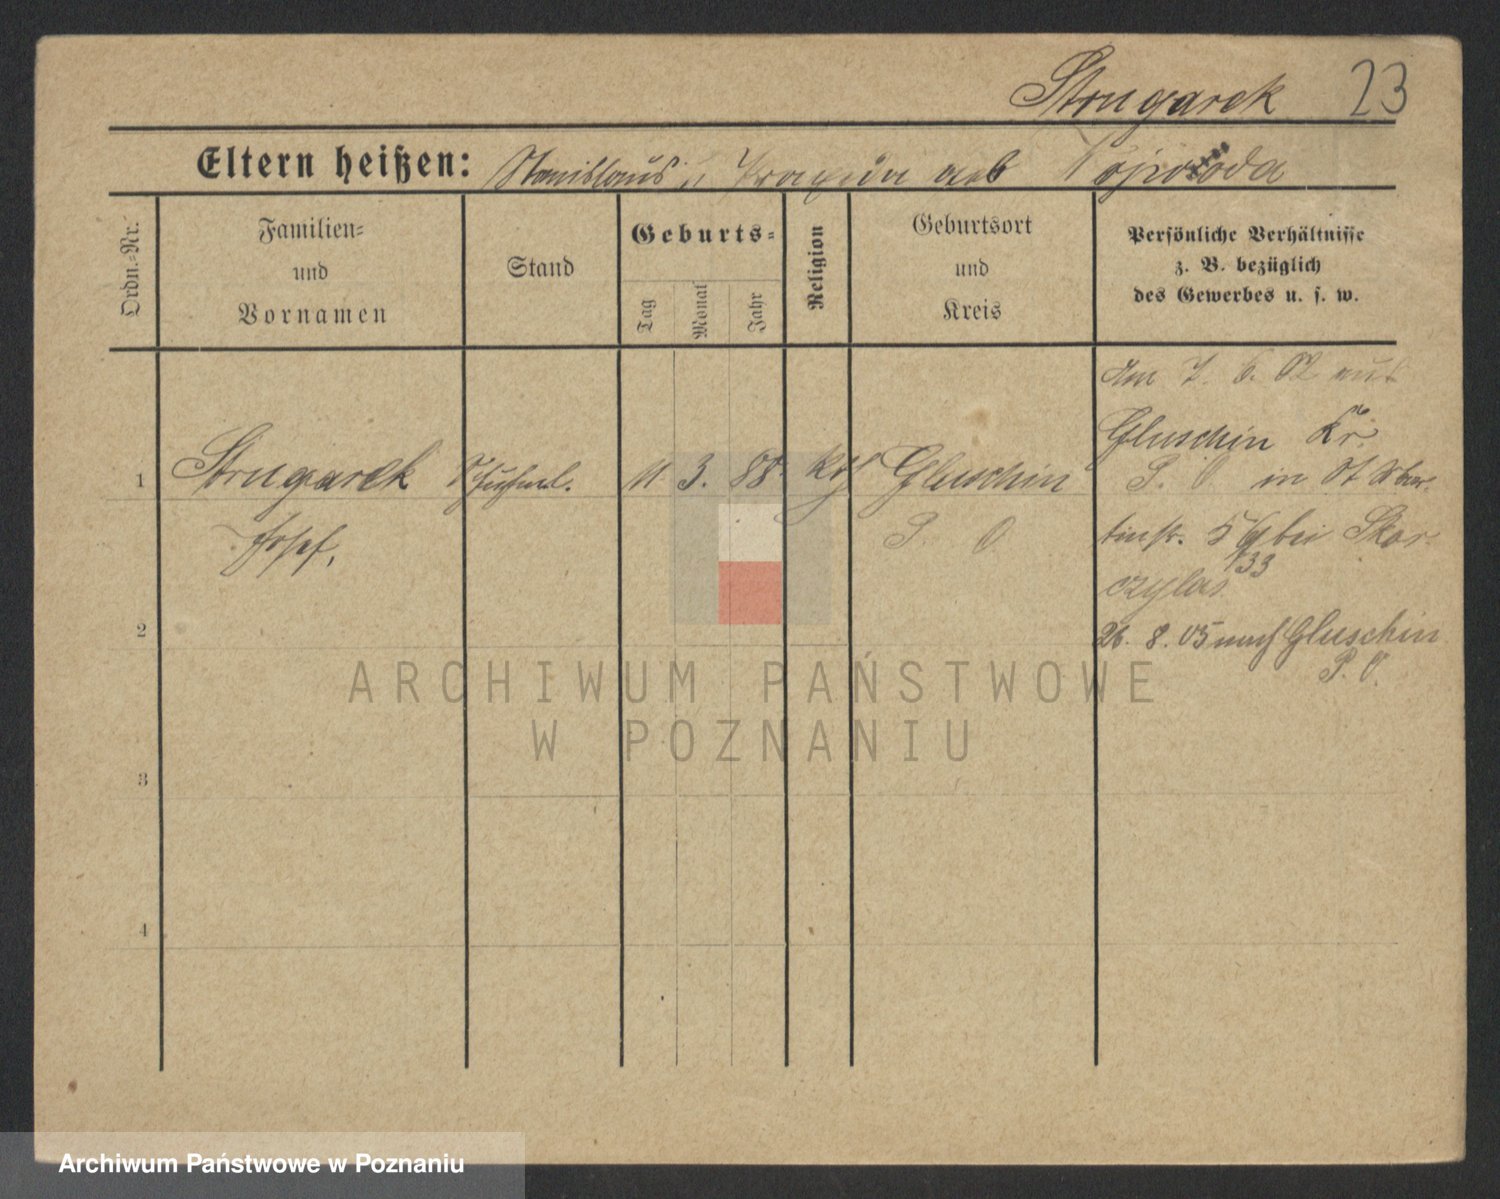 Strugarek 23
Eltern heißen: Stanislaus u Franziska geb
Ordn.-Nr.
Familien-
und
Vornamen
Stand
Geburts-
Tag
Monat
Jahr
Religion
Geburtsort
und
Kreis
Persönliche Verhältnisse
z. B. bezüglich
des Gewerbes u. s. w.
Am 7. 6. 02 aus
Gluschin Kr.
P. O in St Mar-
tinstr. bei Skor-
33
czylas
26. 8. 05 nach Gluschin
P. O.
1
Strugarek
Josef.
11 3. 88. kath Gluschin
P. O
2
3
4
ARCHIWUM PAŃSTWOWE
W POZNANIU
Archiwum Państwowe w Poznaniu